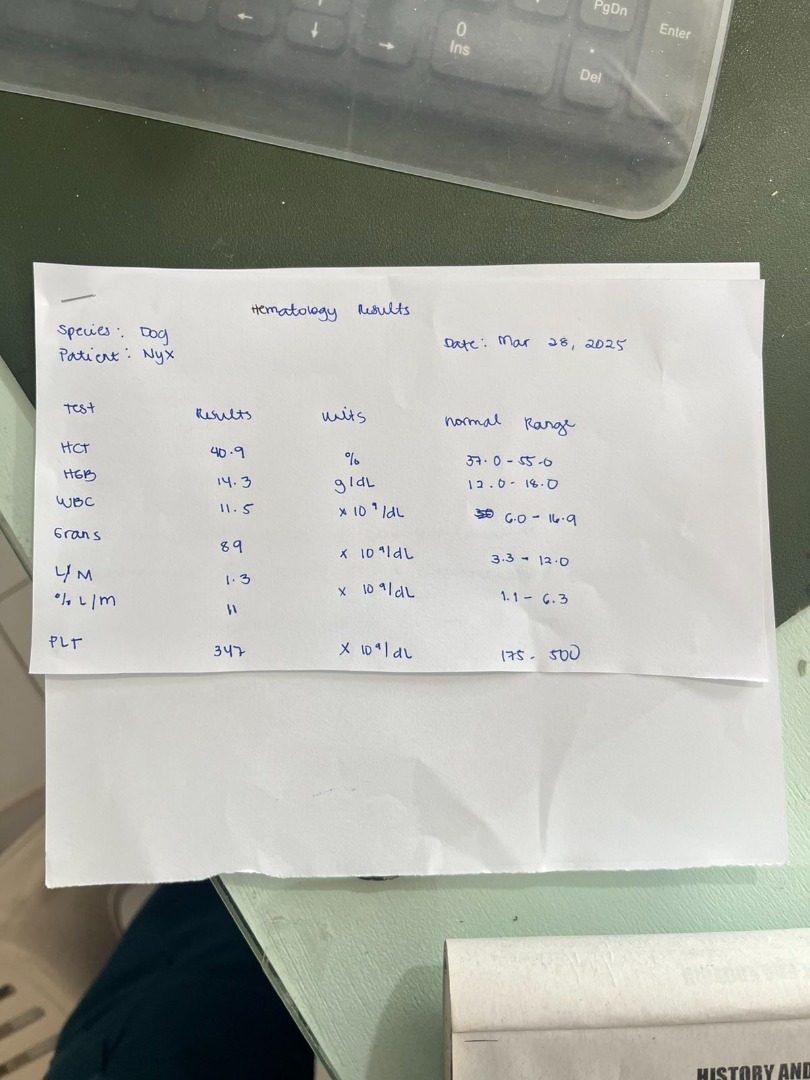 PgDn
Enter
0
Ins
Del
← ↓ →
Hematology Results
Species: Dog
Patient: Nyx
Date: Mar 28, 2025
Test Results units normal Range
HCT 40.9 % 37.0 - 55.0
HGB 14.3 g/dL 12.0 - 18.0
WBC 11.5 x 10⁹/dL 6.0 - 16.9
Grans 89 x 10⁹/dL 3.3 - 12.0
L/M 1.3 x 10⁹/dL 1.1 - 6.3
% L/m 11
PLT 347 x 10⁹/dL 175 - 500
HISTORY AND